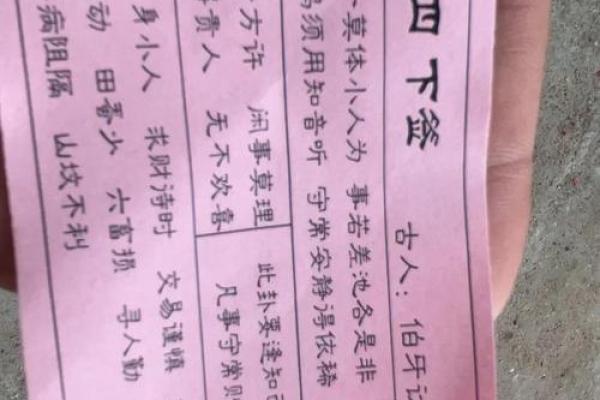 四 下签 古人：伯牙
莫体小人为 事若差池各是非
须用知音听 守常安静得依稀
方许 闲事莫理
贵人 无不欢喜
此卦要逢知己
凡事守常
身小人 求财诗时 交易谨慎
动 田番少 六畜损 寻人勤
病阻隔 山坟不利